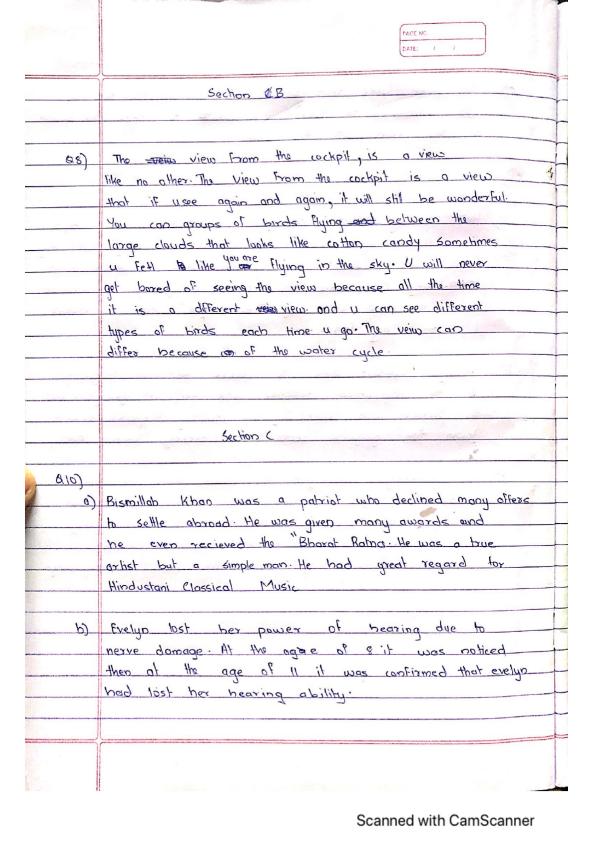 PAGE NO.
DATE: / /
Section B
Q8) The view from the cockpit, is a view
like no other. The view from the cockpit is a view
that if usee again and again, it will still be wonderful.
You can groups of birds flying between the
large clouds that looks like cotton candy Sometimes
u fell like you are flying in the sky. U will never
get bored of seeing the view because all the time
it is a different view and u can see different
types of birds each time u go. The veiw can
differ because of the water cycle.
Section C
Q.10)
a) Bismillah Khan was a patriot who declined many offers
to settle abroad. He was given many awards and
he even recieved the "Bharat Ratna. He was a true
artist but a simple man. He had great regard for
Hindustani Classical Music
b) Evelyn lost her power of hearing due to
nerve damage. At the age of 8 it was noticed
then at the age of 11 it was confirmed that evelyn
had lost her hearing ability.
Scanned with CamScanner